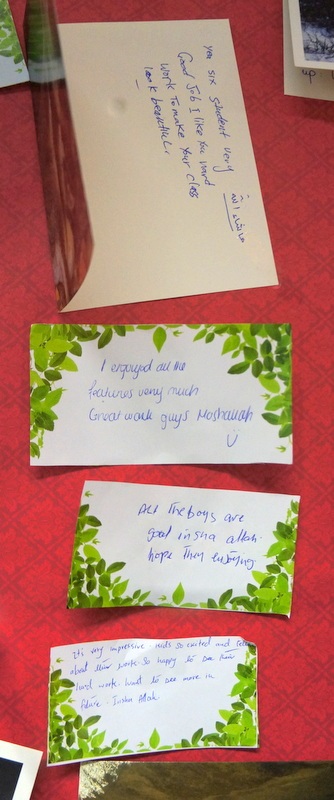 yer six student very
Good Job I like You Hard
work To make Your class
look beautiful.
I enjoyed all the
features very much
Great work guys Mashallah
All The boys are
good insha allah.
hope They enjoying.
It's very impressive kids so excited and
about their work. So happy to see their
hard work. Want to see more in
future. Insha Allah.
up